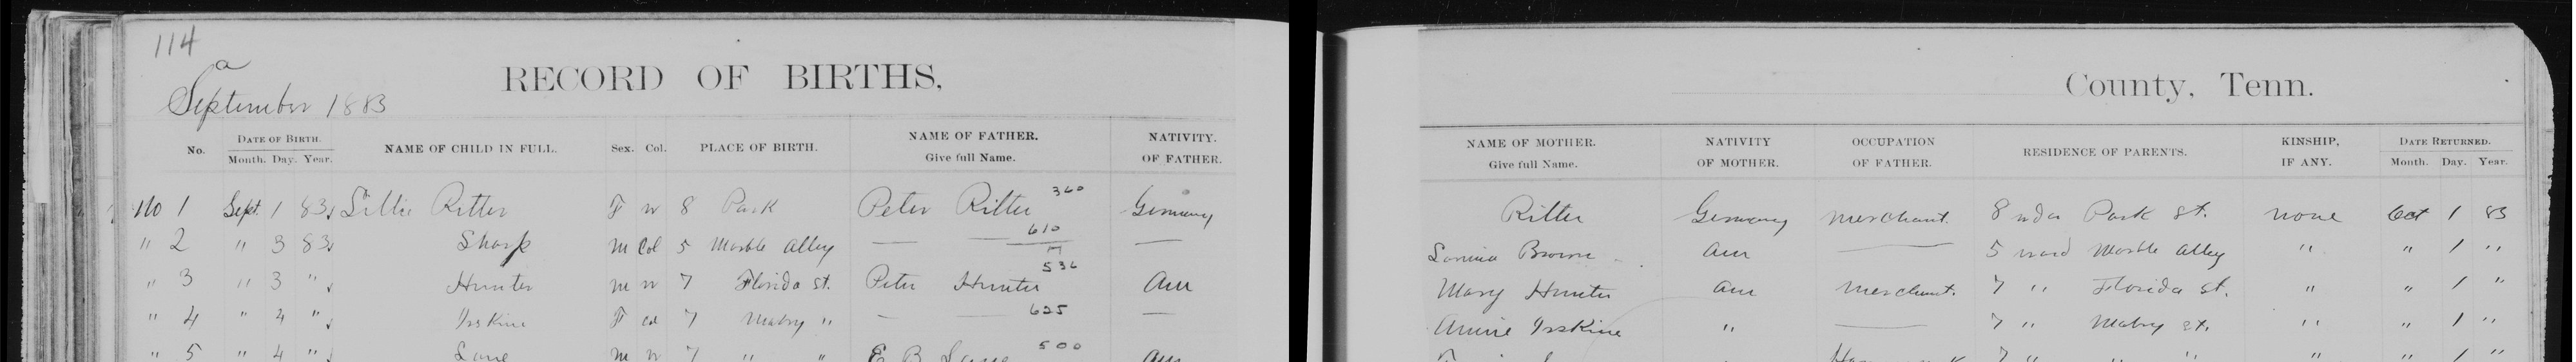 114
a
September 1883
RECORD OF BIRTHS,
County, Tenn.
No. DATE OF BIRTH. Month. Day. Year. NAME OF CHILD IN FULL. Sex. Col. PLACE OF BIRTH. NAME OF FATHER. Give full Name. NATIVITY. OF FATHER. NAME OF MOTHER. Give full Name. NATIVITY OF MOTHER. OCCUPATION OF FATHER. RESIDENCE OF PARENTS. KINSHIP, IF ANY. DATE RETURNED. Month. Day. Year.
No 1 Sept. 1 83 Lillie Ritter F w 8 Park Peter Ritter 360 Germany Ritter Germany merchant. 8 Park St. none Oct 1 83
" 2 " 3 83 Sharp m Col 5 Marble Alley — — 610 — Brown am — 5 ward Marble Alley " " 1 "
" 3 " 3 " Hunter m w 7 Florida st. Peter Hunter 536 Am Mary Hunter am merchant. 7 " Florida st. " " 1 "
" 4 " 4 " Irskine F col 7 Mabry " — — 625 — Annie Irskine " — 7 " Mabry st. " " 1 "
" 5 " 4 " Lane m w 7 " " E B Lane 500 am 7 " " " " " 1 "